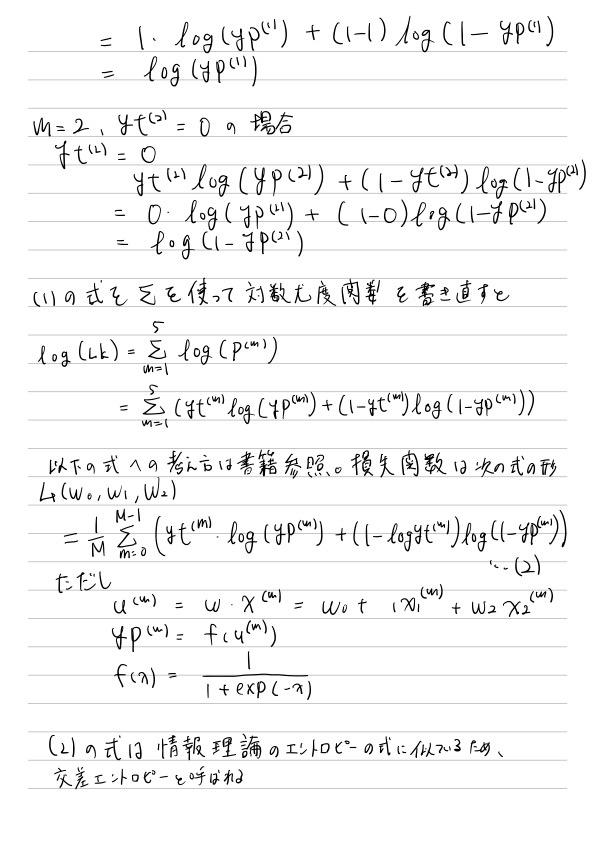 = 1・log(yp⁽¹⁾) + (1-1) log(1-yp⁽¹⁾)
= log(yp⁽¹⁾)
m=2、yt⁽²⁾=0 の場合
yt⁽²⁾ = 0
yt⁽²⁾ log(yp⁽²⁾) + (1-yt⁽²⁾) log(1-yp⁽²⁾)
= 0・log(yp⁽²⁾) + (1-0) log(1-yp⁽²⁾)
= log(1-yp⁽²⁾)
(1)の式をΣを使って対数尤度関数を書き直すと
log(Lk) = Σ_{m=1}^{5} log(p⁽ᵐ⁾)
= Σ_{m=1}^{5} (yt⁽ᵐ⁾log(yp⁽ᵐ⁾)+(1-yt⁽ᵐ⁾)log(1-yp⁽ᵐ⁾))
以下の式への考え方は書籍参照。損失関数は次の式の形
L(w₀, w₁, w₂)
= 1/M Σ_{m=0}^{M-1} (yt⁽ᵐ⁾・log(yp⁽ᵐ⁾)+(1-logyt⁽ᵐ⁾)log(1-yp⁽ᵐ⁾))
…(2)
ただし
u⁽ᵐ⁾ = w・x⁽ᵐ⁾ = w₀ + ₁x₁⁽ᵐ⁾ + w₂x₂⁽ᵐ⁾
yp⁽ᵐ⁾ = f(u⁽ᵐ⁾)
f(x) = 1/(1+exp(-x))
(2)の式は情報理論のエントロピーの式に似ているため、
交差エントロピーと呼ばれる